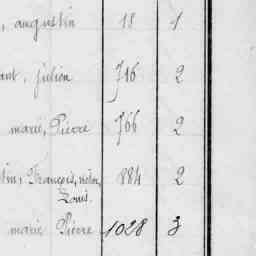 , augustin 18 1
ant, julien 716 2
marie, Pierre 766 2
tin, François, victor, 884 2
Louis.
marie Pierre 1028 3